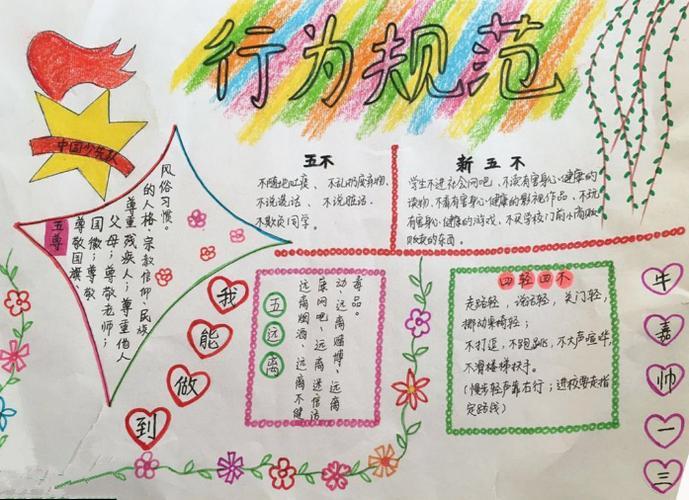 行为规范
中国少先队
五尊
尊敬国旗、
国徽；尊敬
父母；尊敬老师；
尊重残疾人；尊重他人
的人格、宗教信仰、民族
风俗习惯。
五不
不随地吐痰、不乱扔废弃物、
不说谎话、不说脏话、
不欺负同学。
新五不
学生不进社会网吧、不读有害身心健康的
读物、不看有害身心健康的影视作品、不玩
有害身心健康的游戏、不买学校门前小商贩
贩卖的东西。
我能做到
五远离
远离烟酒、远离不健
康网吧、远离迷信活
动、远离赌博、远离
毒品。
四轻四不
走路轻，说话轻，关门轻，
挪动桌椅轻；
不打逗，不跑跳，不大声喧哗，
不滑楼梯扶手。
(慢步轻声靠右行；进校要走指
定路线)
牛嘉帅一三